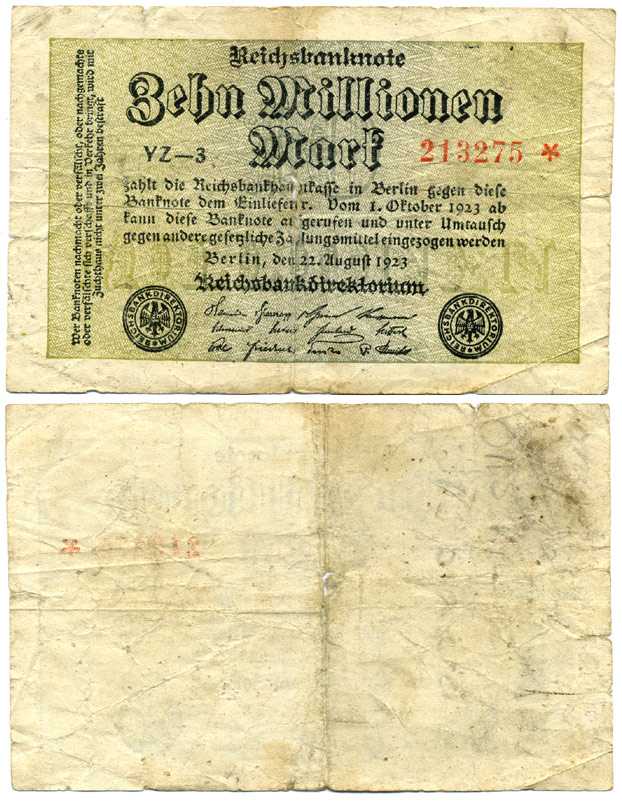 Reichsbanknote
Zehn Millionen
Mark
YZ-3
213275 *
zahlt die Reichsbankhauptkasse in Berlin gegen diese
Banknote dem Einlieferer. Vom 1. Oktober 1923 ab
kann diese Banknote aufgerufen und unter Umtausch
gegen andere gesetzliche Zahlungsmittel eingezogen werden
Berlin, den 22. August 1923
Reichsbankdirektorium
Wer Banknoten nachmacht oder verfälscht, oder nachgemachte
oder verfälschte sich verschafft und in Verkehr bringt, wird mit
Zuchthaus nicht unter zwei Jahren bestraft
REICHSBANKDIREKTORIUM
REICHSBANKDIREKTORIUM